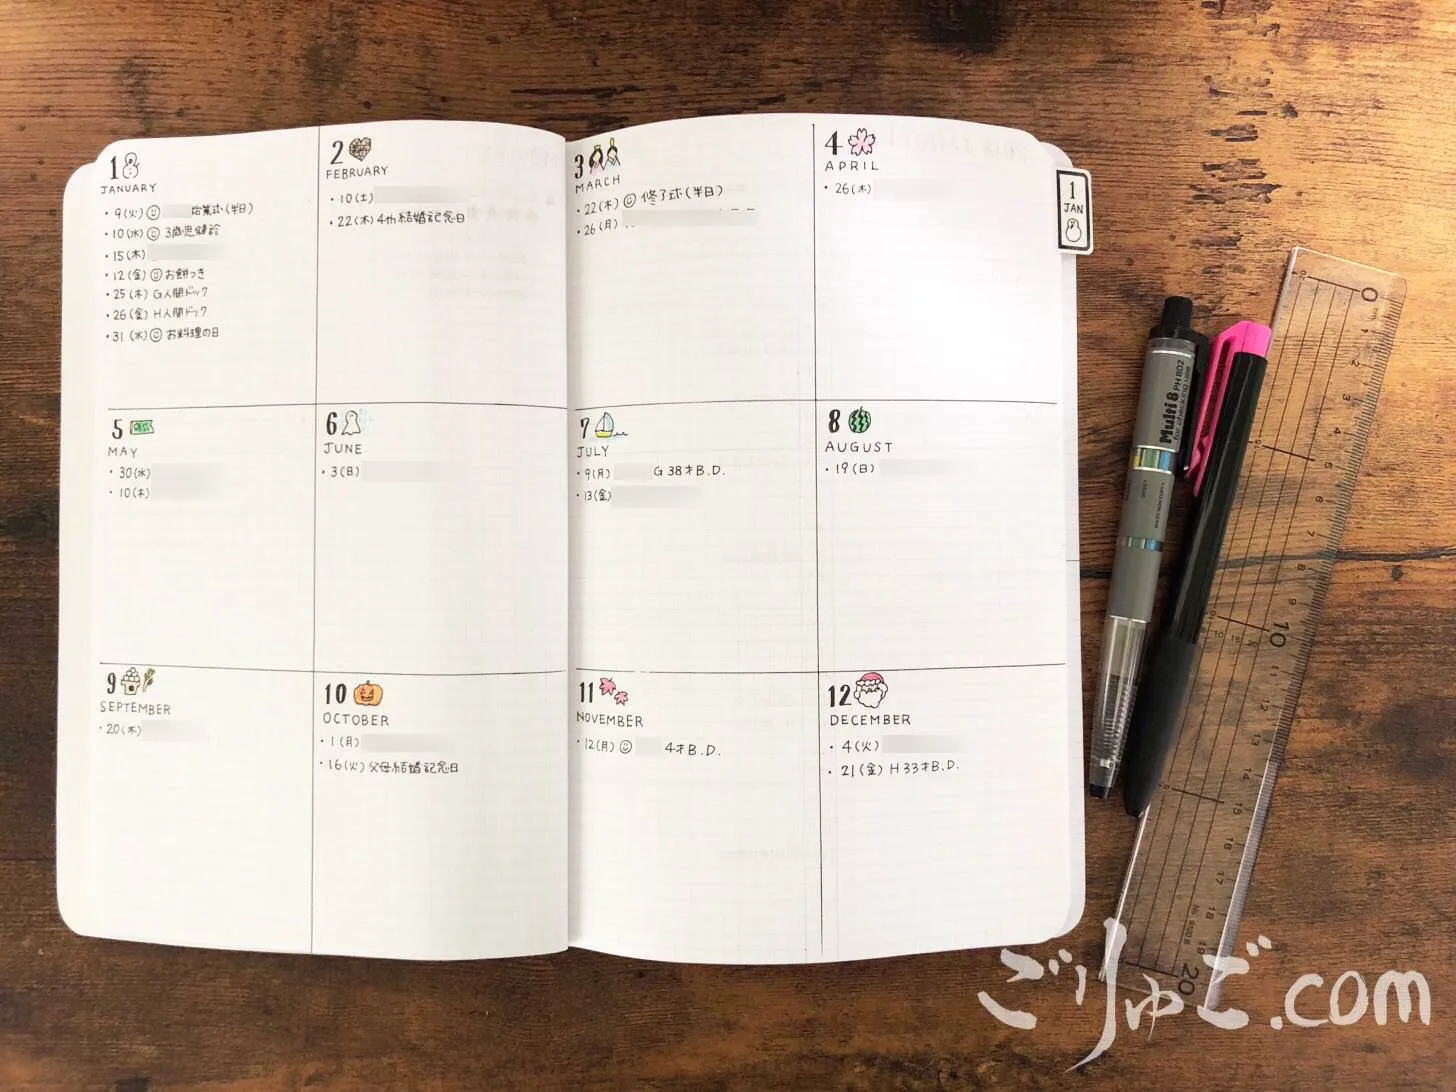 1
JANUARY
・9(火) 始業式(半日)
・10(水) 3歳児健診
・15(木)
・12(金) お餅つき
・25(木) G人間ドック
・26(金) H人間ドック
・31(水) お料理の日
2
FEBRUARY
・10(土)
・22(木) 4th結婚記念日
3
MARCH
・22(木) 修了式(半日)
・26(月)
4
APRIL
・26(木)
1
JAN
5
MAY
・30(水)
・10(木)
6
JUNE
・3(日)
7
JULY
・9(月) G 38才B.D.
・13(金)
8
AUGUST
・19(日)
9
SEPTEMBER
・20(木)
10
OCTOBER
・1(月)
・16(火) 父母結婚記念日
11
NOVEMBER
・12(月) 4才B.D.
12
DECEMBER
・4(火)
・21(金) H 33才B.D.
Multi 8 PH802
for checking use
0
1
2
5
6
7
8
9
10
11
12
13
14
15
16
17
18
20
ごりゅご.com